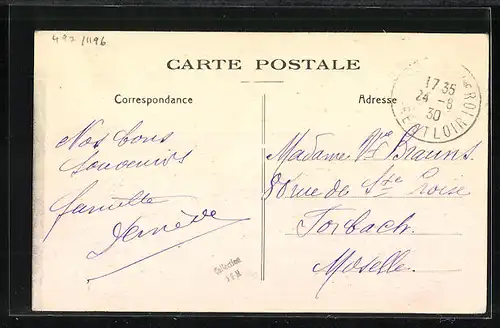 497/1196
CARTE POSTALE
Correspondance
Adresse
17 35
24 - 8
30
Nos bons
souvenirs
famille
Madame Vve Brauns.
80 rue de Ste Croise
Forbach.
Moselle.
Collection